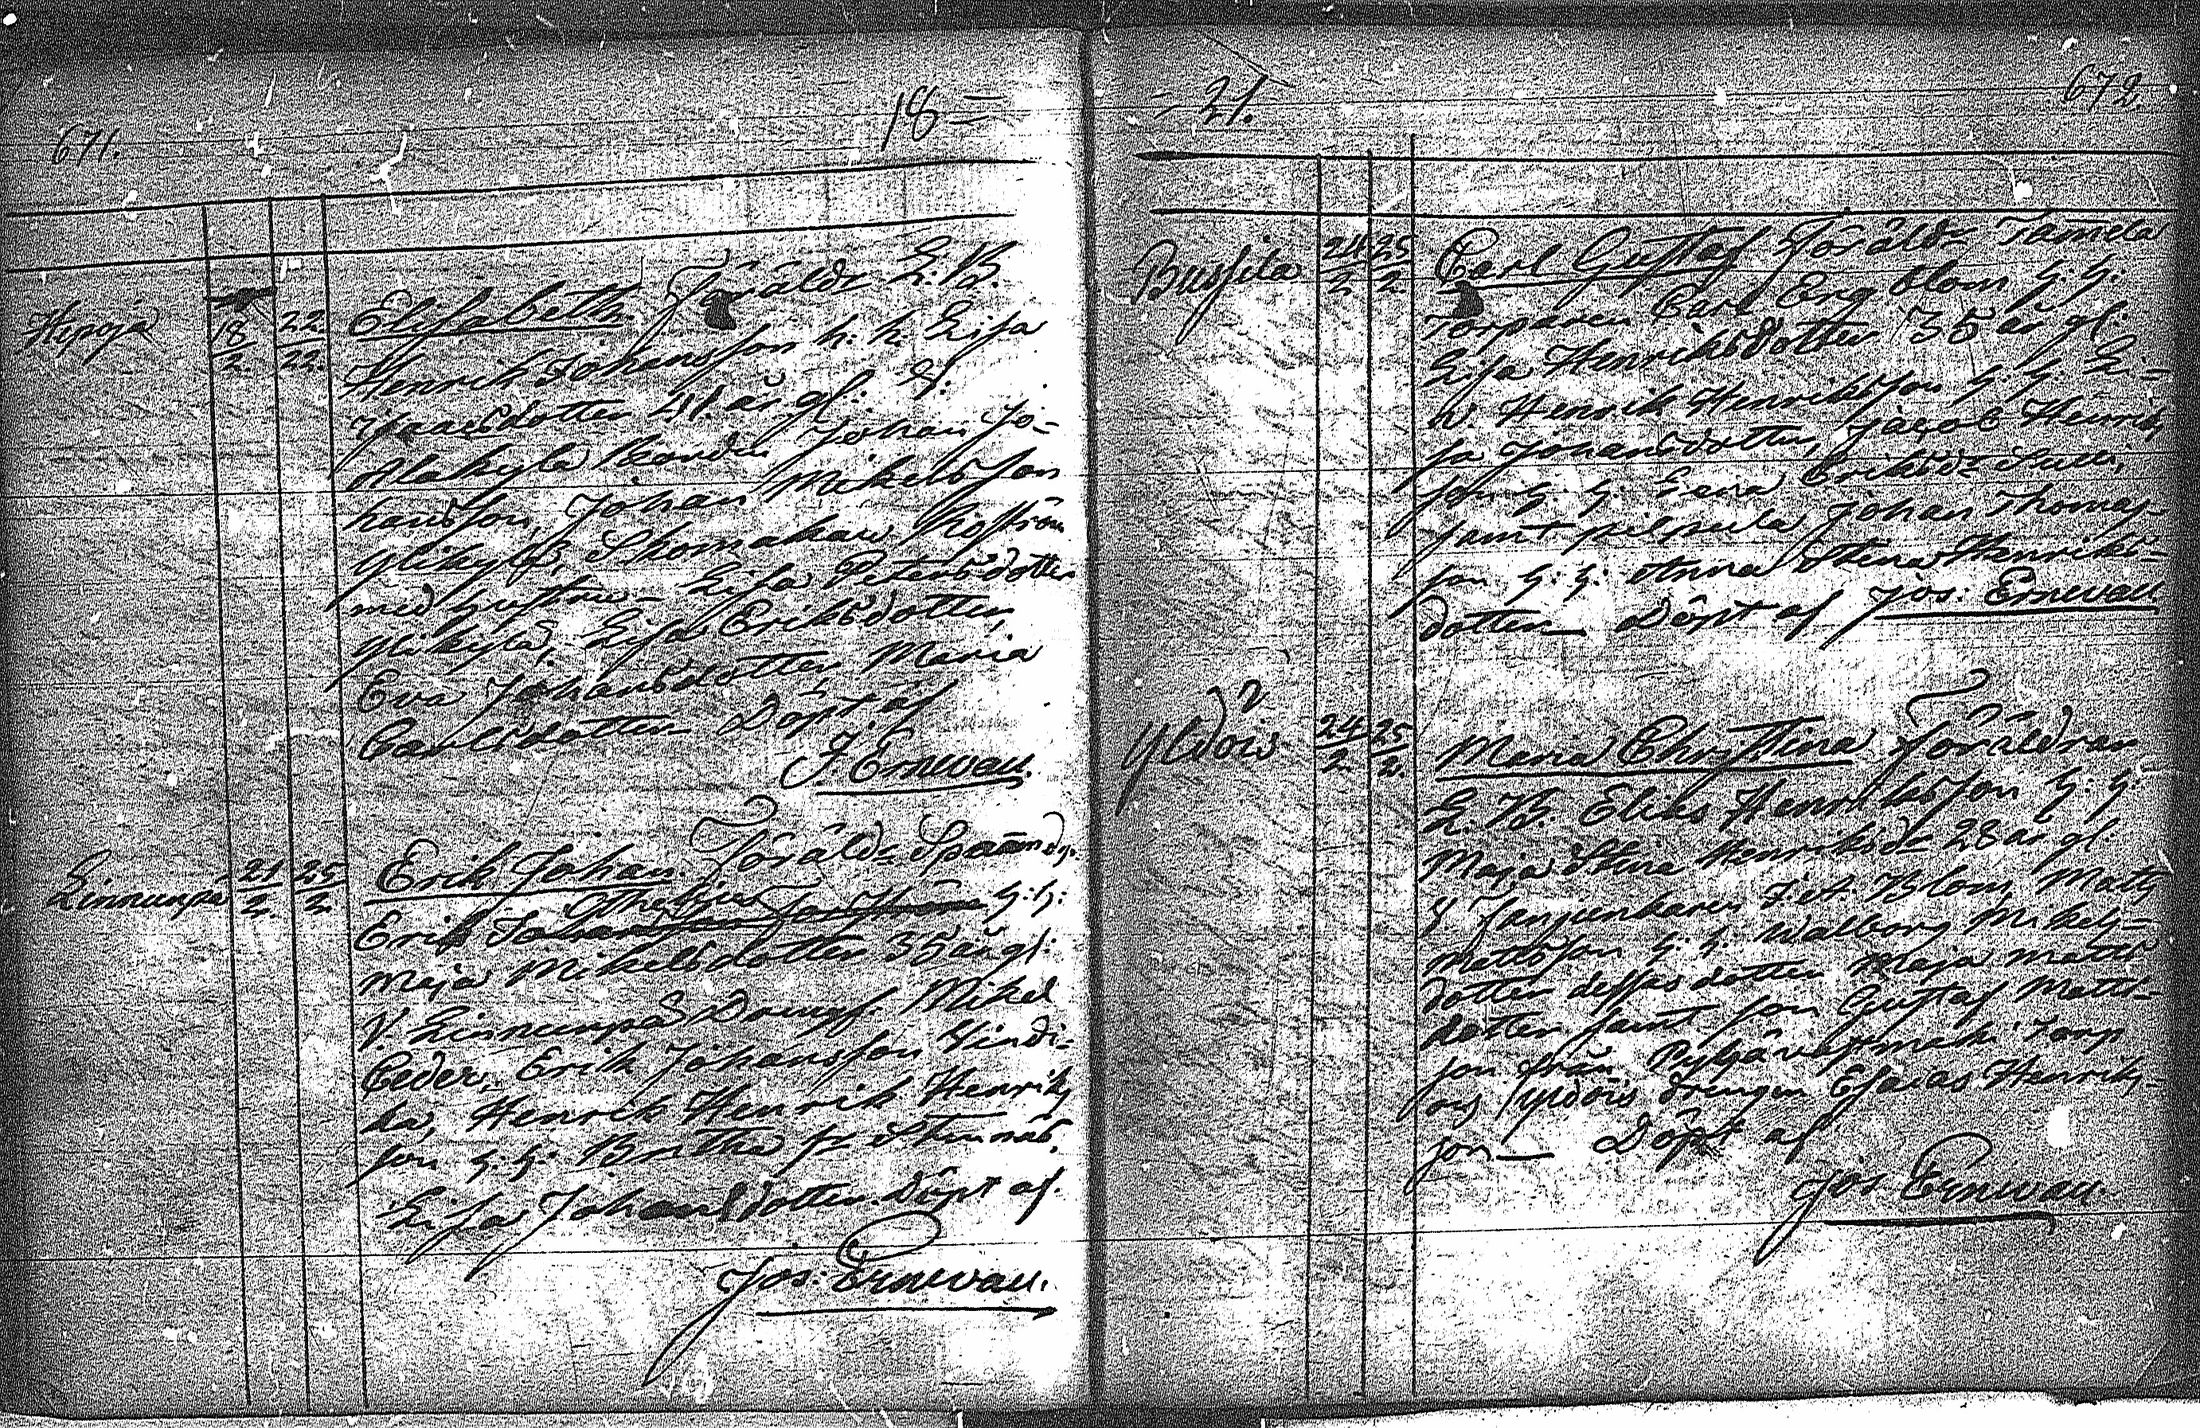 671.
18 =
Hepoja
18/2. 22/22.
Elisabeth. Föräldr L. B.
Henrik Johansson h: h. Lisa
Isaacsdotter 41. år gl: V.
Alakylä Bonden Johan Jo-
hansson, Johan Mikelsson
Ylikylä, Skomakaren
med hustru Lisa Petersdotter
Ylikylä, Lisa Eriksdotter,
Eva Johansdotter, Maria
Carlsdotter Döpt af
J. Ernevall.
Linnunpä
21/2. 25/2.
Erik Johan Föräldr
Erik h: h:
Maja Mikelsdotter 35 år gl:
V. Linnunpä Mikel
Ceder, Erik Johansson
Henrik Henrik Henriks
son h: h: Britha
Lisa Johansdotter. Döpt af.
Jos: Ernevall.
= 21.
672
Bussila
24/2 25/2
Carl Gustaf Föräldr
Torparen Carl Ergblom h: h:
Lisa Henriksdotter 35 år gl:
V. Henrik Henriksson h: h: Li-
sa Johansdotter, Jacob Henriks
son h: h: Lena Eriksdr
samt Johan Thomas-
son h: h: Anna Stina Henriks-
dotter Döpt af Jos: Ernevall
Yldöis
24/2 25/2.
Maria Christina Föräldrar
L. B. Elias Henriksson h: h:
Maja Stina Henriksdr 28 år gl:
V. Blom, Matts
Mattsson h: h: Walborg Mikels-
dotter desses dotter Maja Matts
dotter samt son Gustaf Matts-
son från
Yldöis drengen Esaias Henriks-
son Döpt af
Jos. Ernevall.